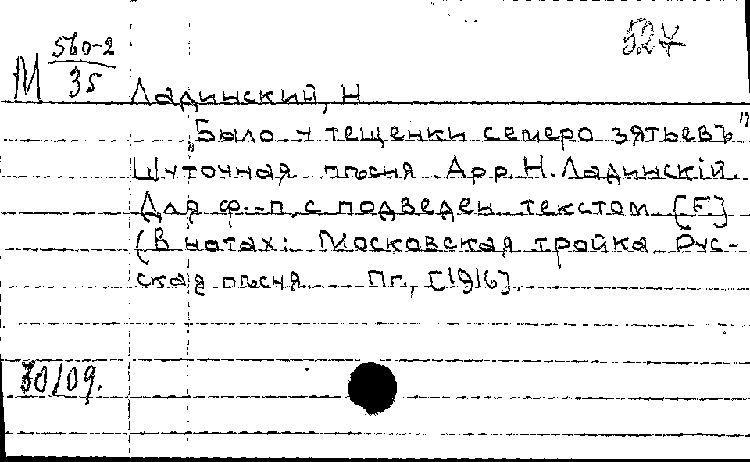 527
М 560-2
35
Ладинский, Н
„Было у тещенки семеро зятьевъ"
Шуточная пѣсня. Арр. Н. Ладинскій.
Для ф.-п. с подведен. текстом. [F.]
(В нотах: Московская тройка. Рус-
ская пѣсня. Пг., [1916].
30/09.